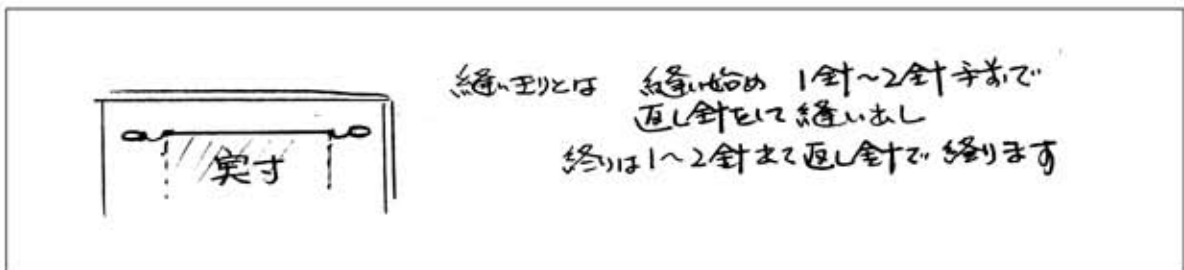 実寸
縫い切りとは 縫い始め 1針〜2針手前で
返し針をして縫い出し
終りは1〜2針出て返し針で終ります